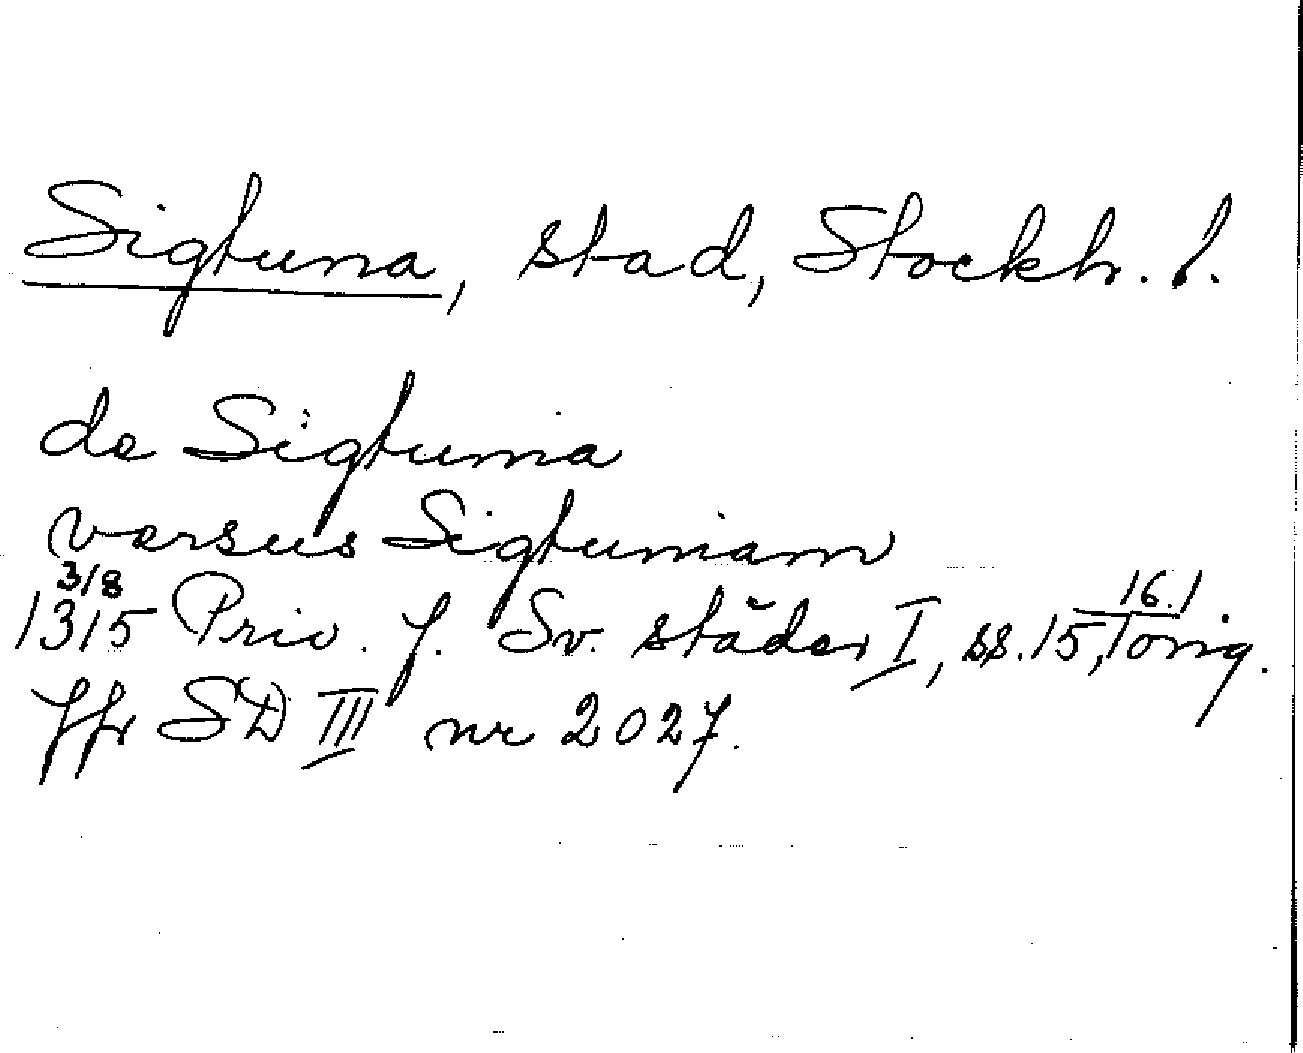 Sigtuna, stad, Stockh. l.
de Sigtunia
versus Sigtuniam
3/8
1315 Priv. f. Sv. städer I, ss. 15, 16. / orig.
Jfr SD III nr 2027.